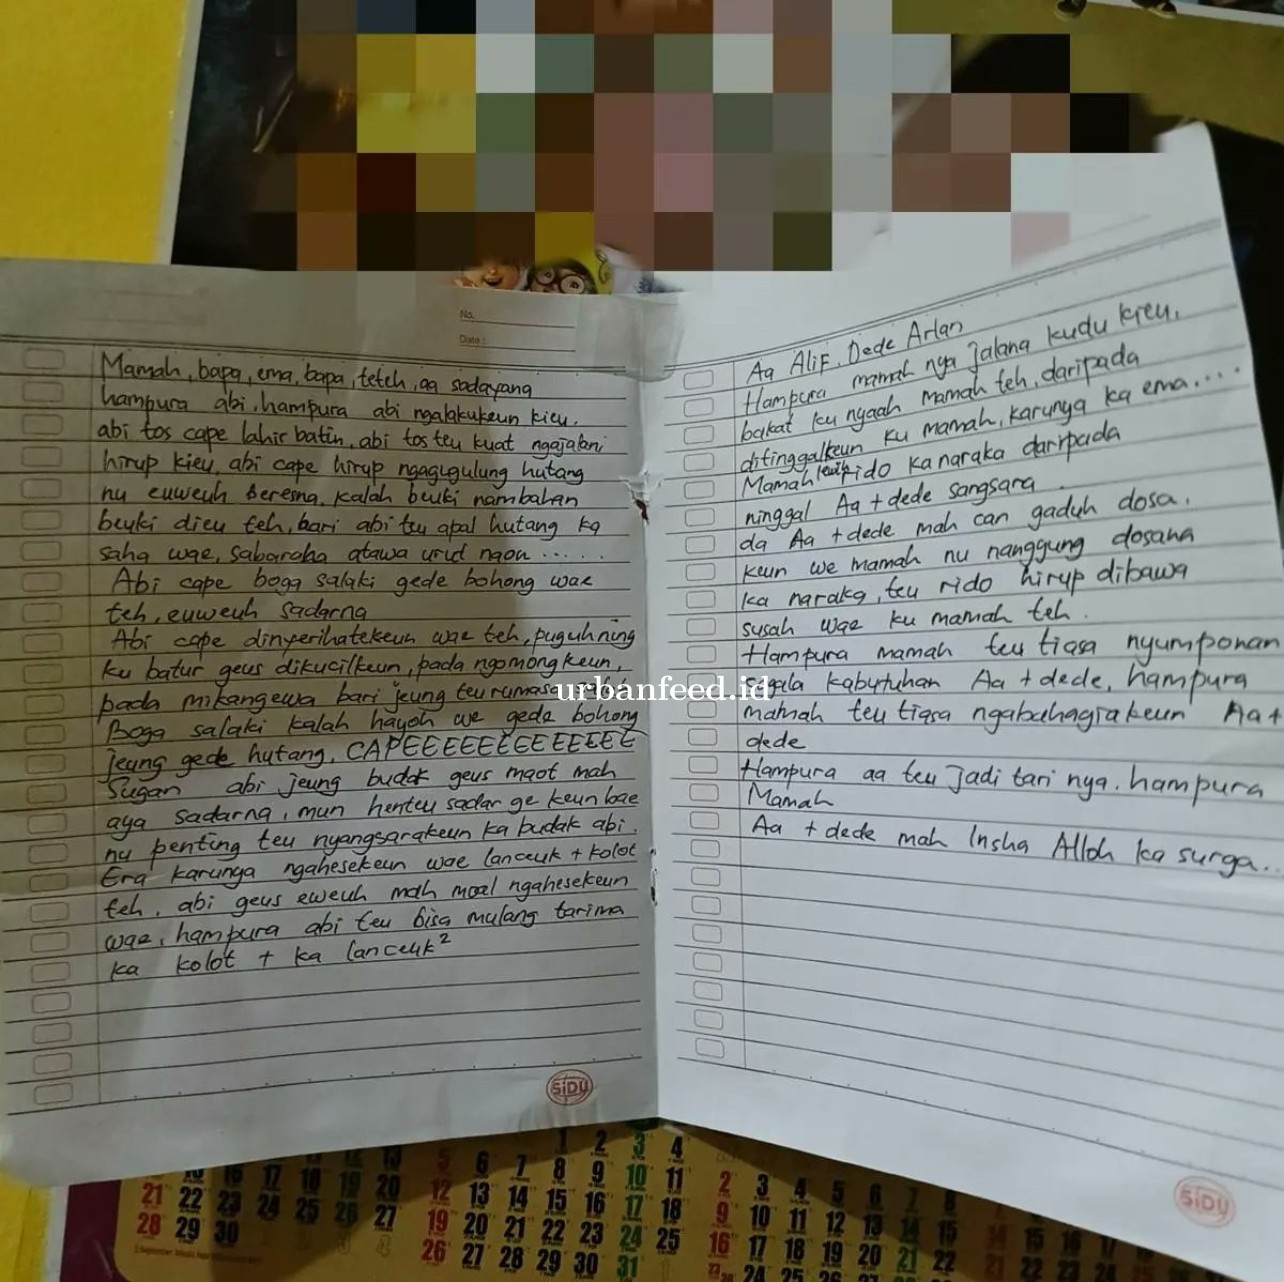 No.
Date :
Mamah, bapa, ema, bapa, teteh, aa sadayana
hampura abi, hampura abi ngalakukeun kieu.
abi tos cape lahir batin, abi tos teu kuat ngajalani
hirup kieu, abi cape hirup ngagugulung hutang
nu euweuh beresna, kalah beuki nambahan
beuki dieu teh, bari abi teu apal hutang ka
saha wae, sabaraha atawa urut naon ......
Abi cape boga salaki gede bohong wae
teh, euweuh sadarna
Abi cape dinyerihatekeun wae teh, puguh ning
ku batur geus dikucilkeun, pada ngomongkeun,
pada mikangewa bari jeung teu rumasa
Boga salaki kalah hayoh we gede bohong
jeung gede hutang, CAPEEEEEEEEEEEEE
Sugan abi jeung budak geus maot mah
aya sadarna, mun henteu sadar ge keun bae
nu penting teu nyangsarakeun ka budak abi.
Era karunya ngahesekeun wae lanceuk + kolot
teh, abi geus eweuh mah moal ngahesekeun
wae, hampura abi teu bisa mulang tarima
ka kolot + ka lanceuk²
SIDU
Aa Alif, Dede Arlan
Hampura mamah nya jalana kudu kieu,
bakat ku nyaah mamah teh, daripada
ditinggalkeun ku mamah, karunya ka ema....
Mamah leuwih rido ka naraka daripada
ninggal Aa + dede sangsara
da Aa + dede mah can gaduh dosa.
keun we mamah nu nanggung dosana
ka naraka, teu rido hirup dibawa
susah wae ku mamah teh.
Hampura mamah teu tiasa nyumponan
segala kabutuhan Aa + dede, hampura
mamah teu tiasa ngabahagiakeun Aa +
dede
Hampura aa teu jadi tari nya. hampura
Mamah
Aa + dede mah Insha Alloh ka surga..
SIDU
urbanfeed.id
1 2 3 4
5 6 7 8 9 10 11
12 13 14 15 16 17 18
19 20 21 22 23 24 25
26 27 28 29 30 31
21 22 23 24 25 26 27
28 29 30
2 3 4 5 6 7 8
9 10 11 12 13 14 15
16 17 18 19 20 21 22
24 25 26 27 28